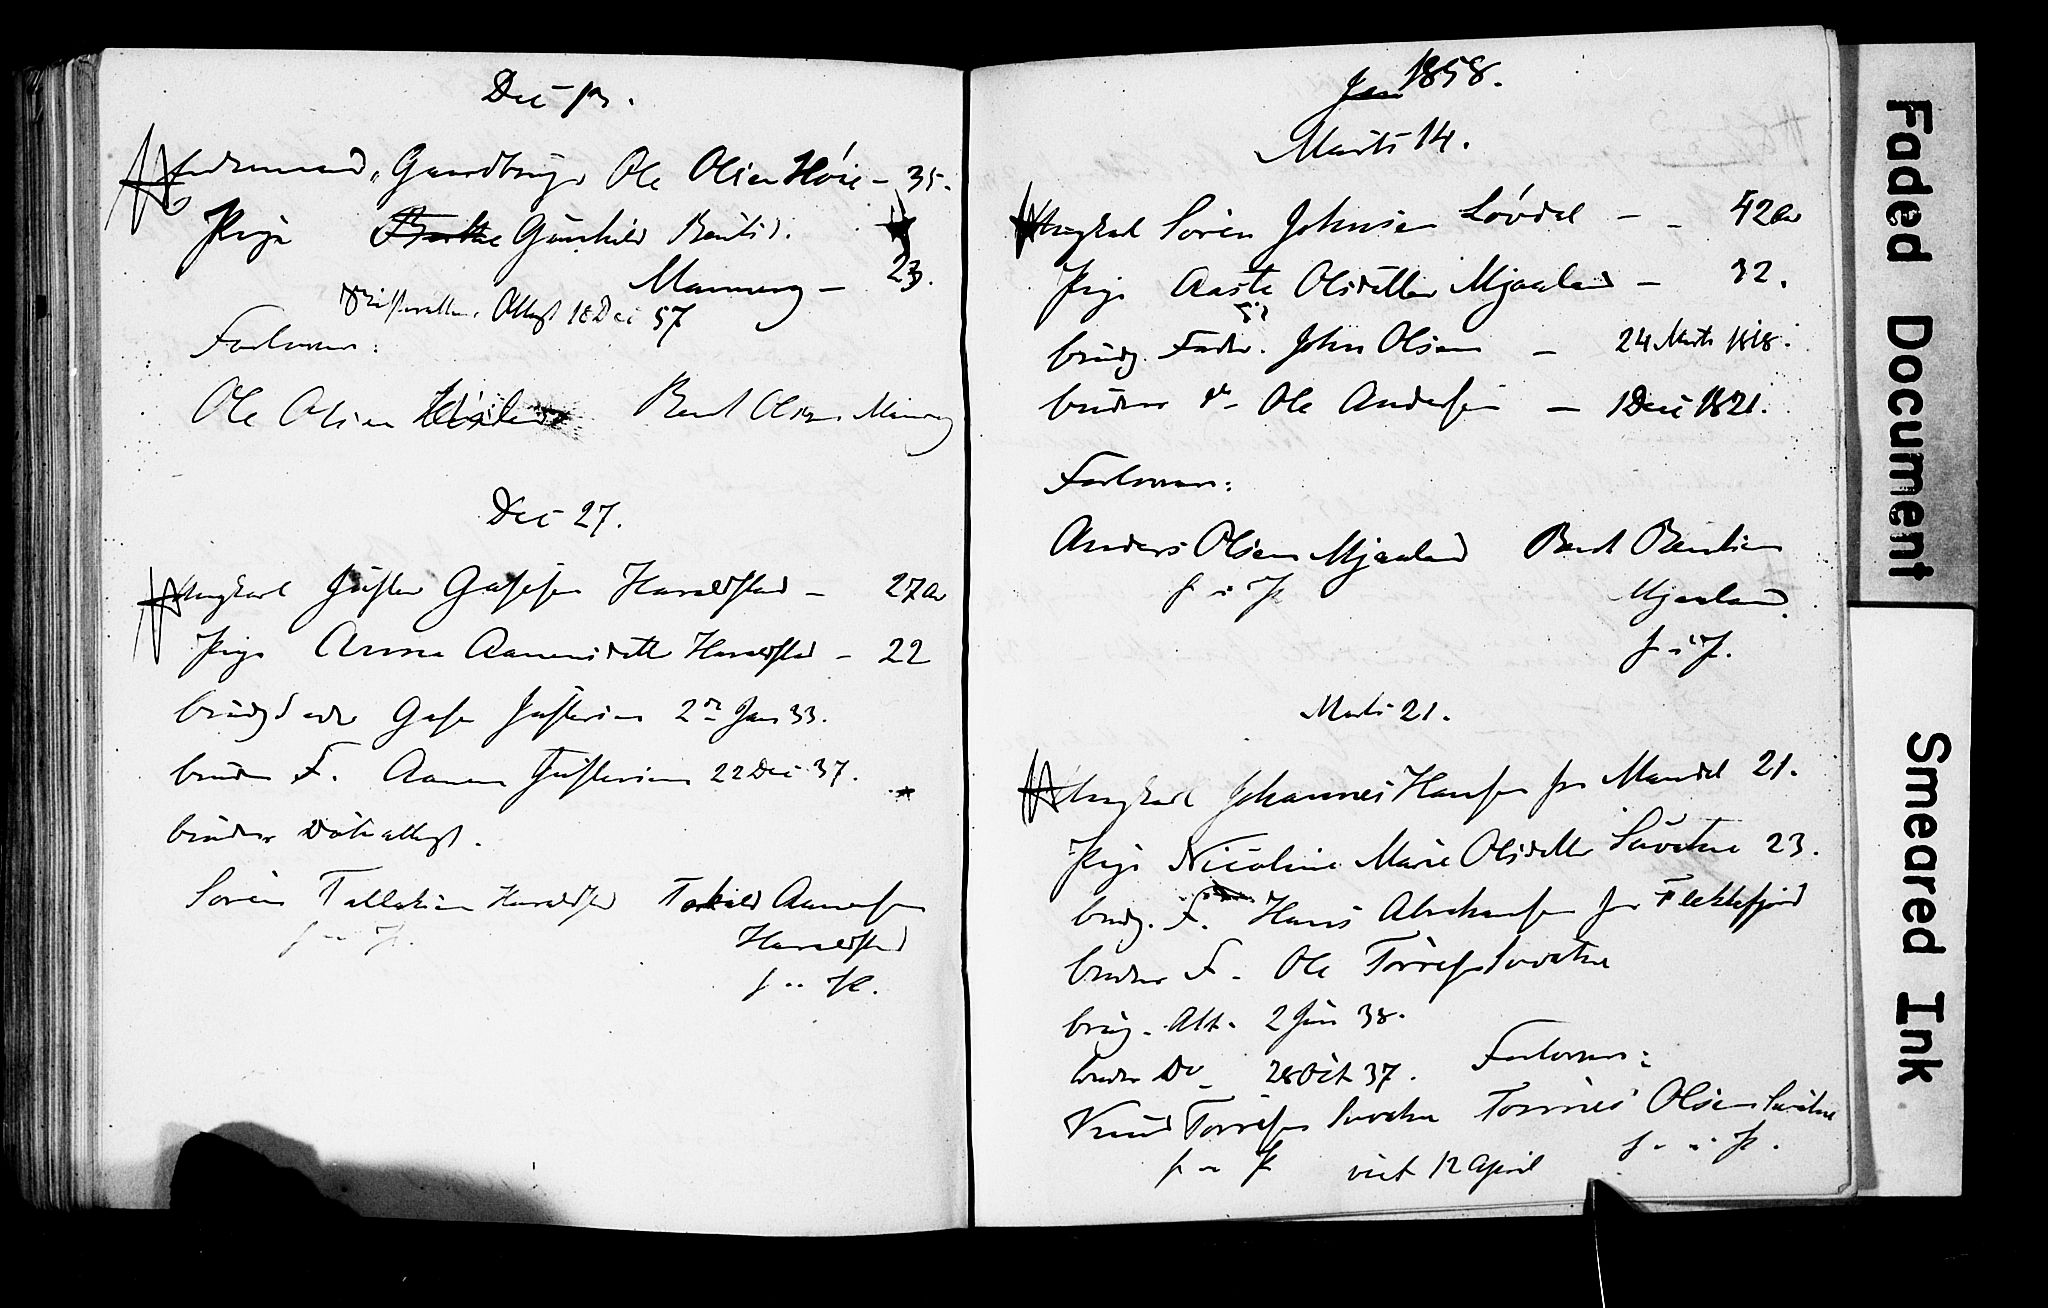 Dec 13.
Enkemand, Gaardbruger Ole Olsen Høie – 35.
Pige Berthe Gunhild Bentsd.
Manneng – 23.
Attest 18 Dec 57
Forlovere:
Ole Olsen Bent Olsen
Dec 27.
Ungkarl Gustav Hareldstad – 27 Aar
Pige Anna Aanensdatter Hareldstad – 22
brudg Fader Gustavsen 2 Jan 33.
brudens F. Aanen Gustavsen 22 Dec 37.
brudens Døbeattest.
Søren Tallaksen Hareldstad Torkild Aanensen
Hareldstad
1858.
Marts 14.
Ungkarl Søren Johnsen Løvdal – – 42 Aar
Pige Aaste Olsdatter Mjaaland – 32.
brudg. Fader. John Olsen – 24 Marts 1818.
brudens do – Ole Andersen – 1 Dec 1821.
Forlovere:
Anders Olsen Mjaaland Bent Bentsen
Mjaaland
Marts 21.
Ungkarl Johannes Hansen fra Mandal 21.
Pige Nicoline Marie Olsdatter Sævatne 23.
brudg. F. Hans Abrahamsen fra Flekkefjord
brudens F. Ole Tørresen Sævatne
brudg. Att. 2 Jun 38.
brudens Do – 28 Oct 37. Forlovere:
Knud Tørresen Sævatne Tønnes Olsen Sævatne
viet 12 April
Faded Document
Smeared Ink